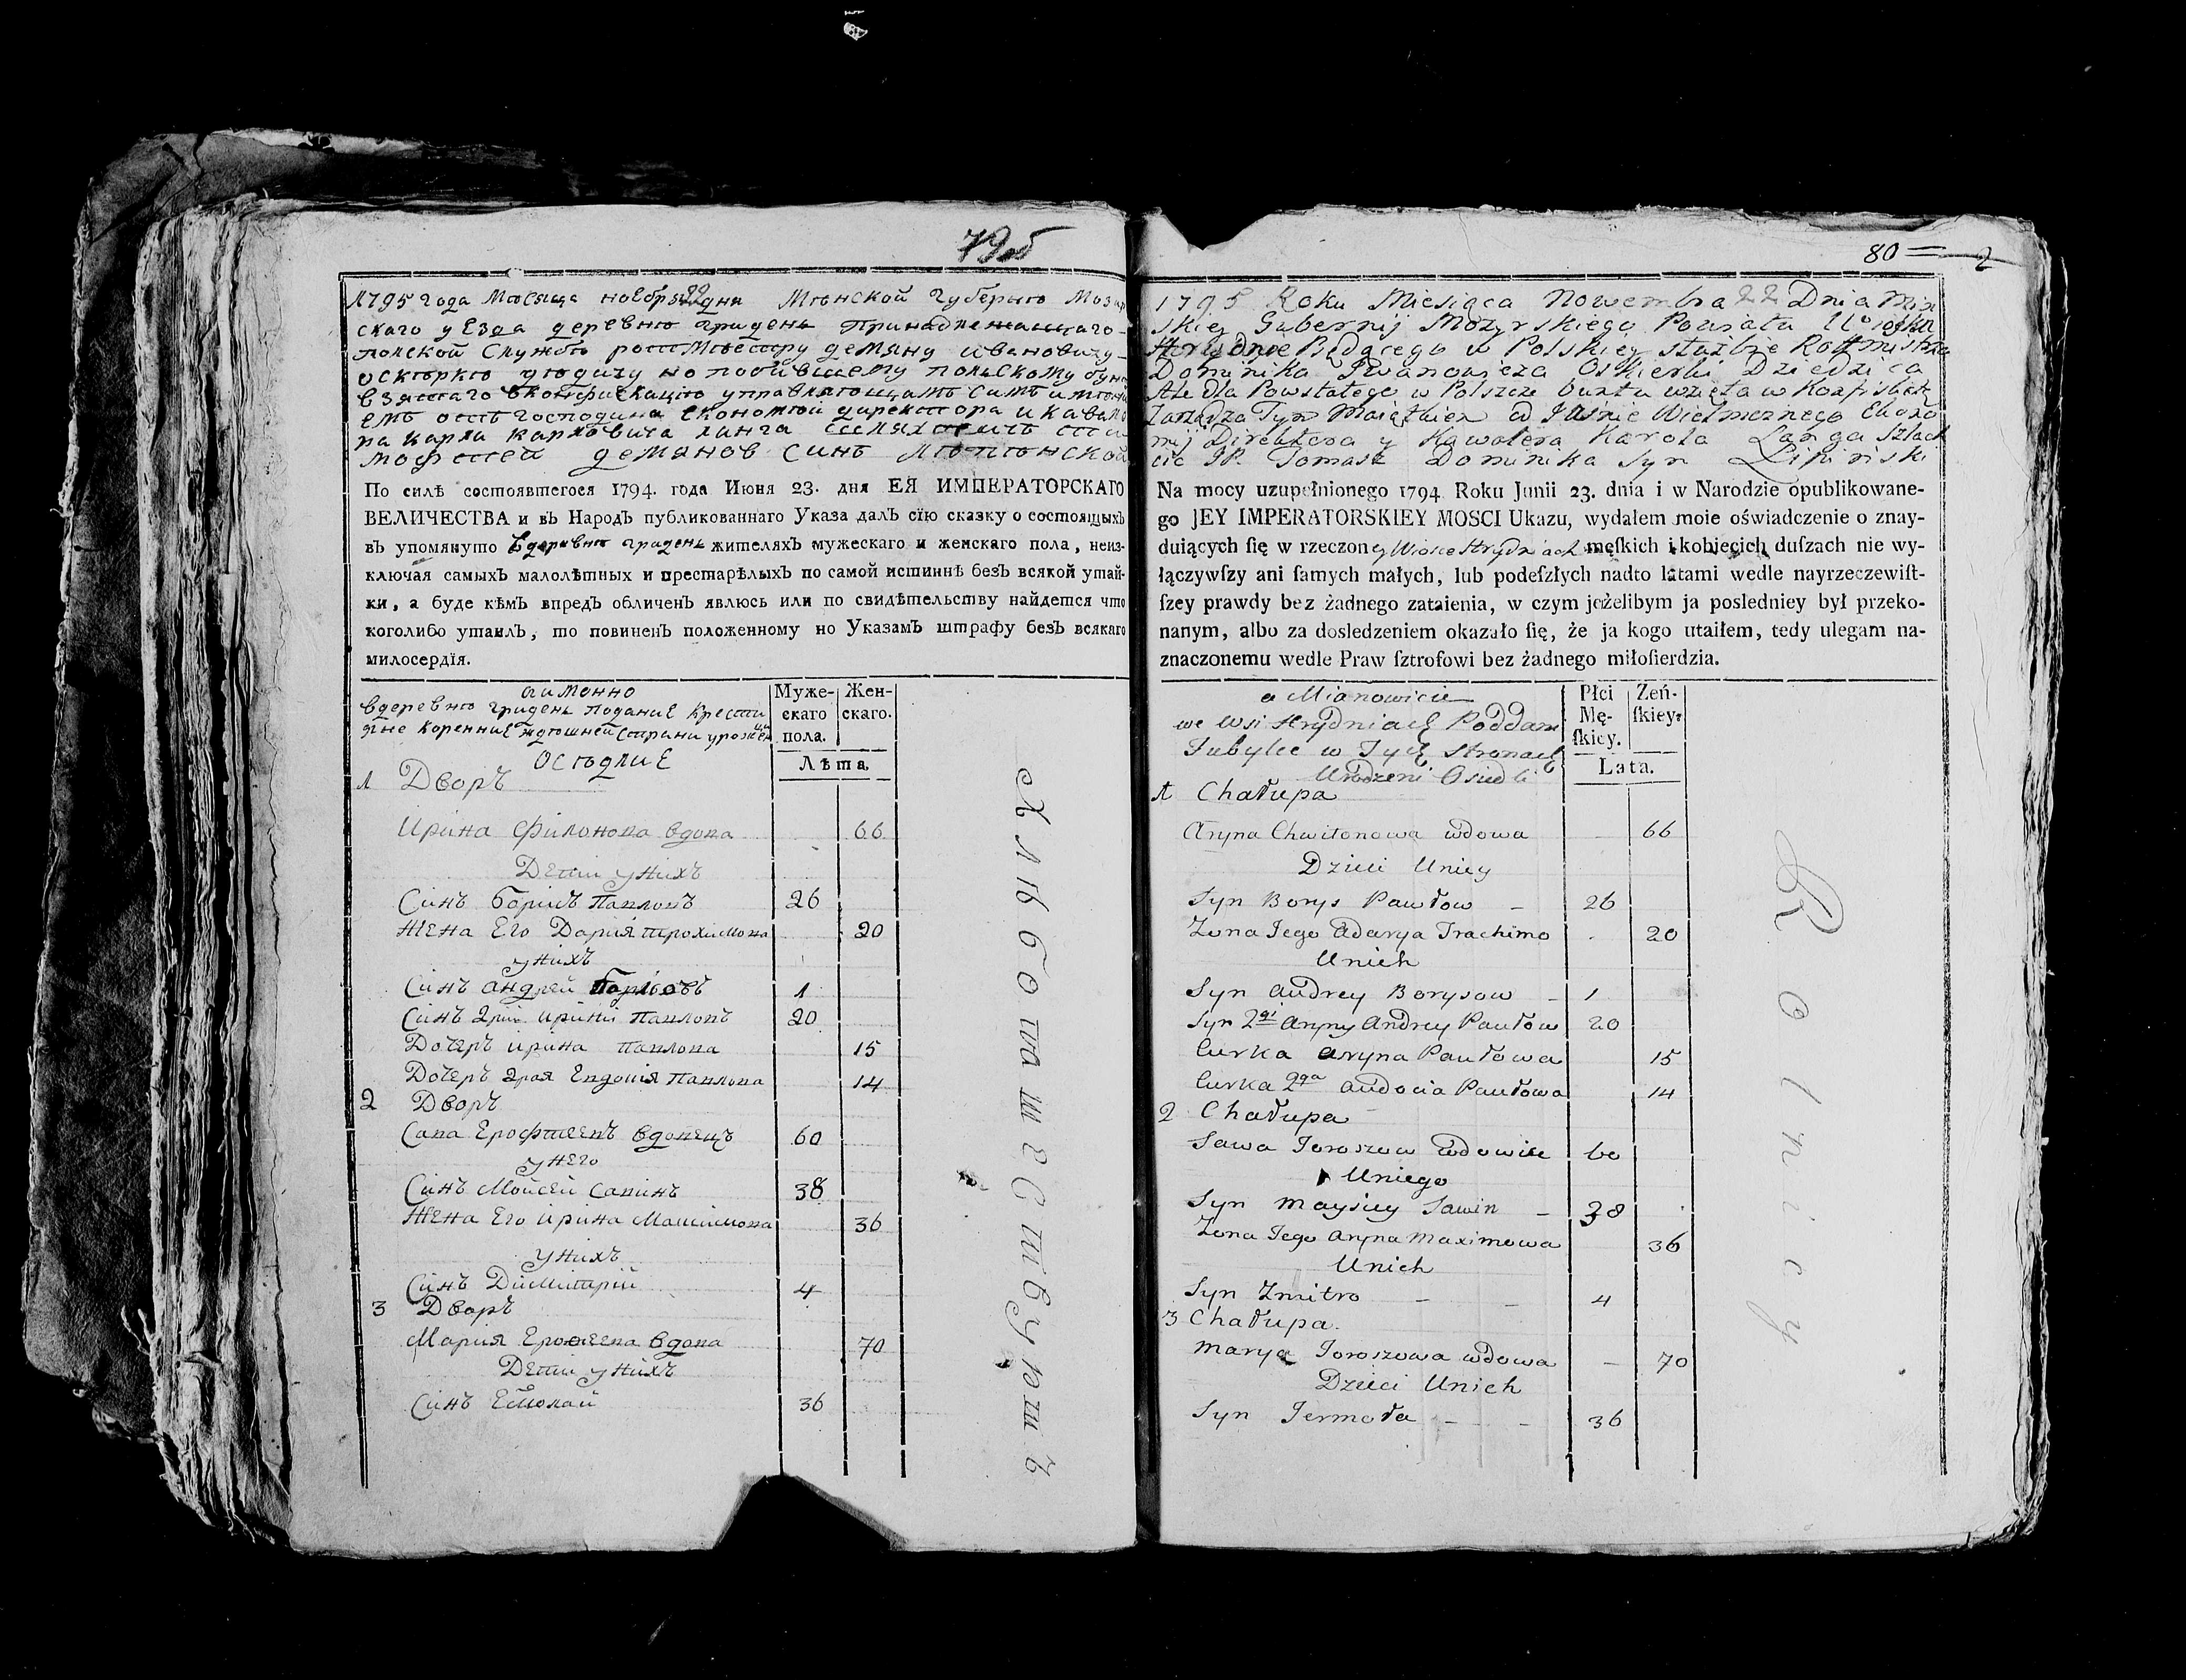 79об
1795 года Месяца ноебря 22 дня Мѣнской Губернѣ Мозыр
скаго уезда деревнѣ гридень принадлежащаго
полской Службѣ ротмѣстру демяну ивановичу
оскѣркѣ дѣдичу но побившему польскому бун
взятаго вконфискацию управляющамъ симъ имѣни
емъ отъ Господина економѣй директора и кавале
ра карла карловича ланга шляхтичъ
мофтей демянов синъ лѣпѣнской
По силѣ состоявшегося 1794. года Июня 23. дня ЕЯ ИМПЕРАТОРСКАГО
ВЕЛИЧЕСТВА и въ Народъ публикованнаго Указа далъ сїю сказку о состоящыхъ
въ упомянуто вдеревнѣ гридень жителяхъ мужескаго и женскаго пола, неиз-
ключая самыхъ малолѣтныхъ и престарѣлыхъ по самой истиннѣ безъ всякой утай-
ки, а буде кѣмъ впредъ обличенъ явлюсь или по свидѣтельству найдется что
коголибо утаилъ, то повиненъ положенному по Указамъ штрафу безъ всякаго
милосердїя.
аимонно
вдеревнѣ гридень поданиe крестя
яне коренниe здѣшней страни урожен
осѣдлиe
Муже-
скаго
пола.
Жен-
скаго.
Лѣта
1 Дворъ
Ирина Филонова вдова 66
Дети унихъ
Синъ Борисъ Павловъ 26
Жена Его Дария трохимова 20
унихъ
Синъ Андрей Борисовъ 1
Синъ 2рий ирини Павловъ 20
Дочеръ ирина Павлова 15
Дочеръ 2рая Евдокия Павлова 14
2 Дворъ
Сава Ерофтеевъ вдовецъ 60
унего
Синъ Мойсей Савинъ 38
Жена Его ирина Максимова 36
унихъ
Синъ Димитрий 4
3 Дворъ
Мария Ерофеева вдова 70
Дети унихъ
Синъ Ермолай 36
Хлѣбопашествуютъ
80 = 2
1795 Roku Miesiąca Nowembra 22 Dnia Min
skiey Gubernij Mozyrskiego Powiatu
Hrydnie Będącego w Polskiey służbie Rottmistrza
Dominika Iwanowicza Oskierki Dziedzica
Ale dla Powstałego w Polszcze buntu wzięta w Konfiskatę
Zarządza Tym Maiątkiem od Jaśnie Wielmożnego Ekono
mij Direktora y Kawalera Karola Langa Szlach
cic JP. Tomasz Dominika Syn Lipiński
Na mocy uzupełnionego 1794 Roku Junii 23. dnia i w Narodzie opublikowane-
go JEY IMPERATORSKIEY MOSCI Ukazu, wydałem moie oświadczenie o znay-
duiących ſię w rzeczoney Wiosce Hrydniach męſkich i kobiecich duſzach nie wy-
łączywſzy ani ſamych małych, lub podeſzłych nadto latami wedle nayrzeczewiſt-
ſzey prawdy bez żadnego zataienia, w czym jeżelibym ja posledniey był przeko-
nanym, albo za dosledzeniem okazało ſię, że ja kogo utaiłem, tedy ulegam na-
znaczonemu wedle Praw ſztrofowi bez żadnego miłoſierdzia.
a Mianowicie
we wsi Hrydniach Poddani
Tubylce w Tych Stronach
Urodzeni Osiedli
Płci
Mę-
ſkiey.
Zeń-
ſkiey.
Lata.
1 Chałupa
Aryna Chwitonowa wdowa 66
Dzieci Uniey
Syn Borys Pawłow 26
Zona Jego Adarya Trachimo 20
Unich
Syn Andrey Borysow 1
Syn 2gi Aryny Andrey Pawłow 20
Curka Aryna Pawłowa 15
Curka 2ga Audocia Pawłowa 14
2 Chałupa
Sawa Joroszow wdowiec 60
Uniego
Syn Maysiey Sawin 38
Zona Jego Aryna Maximowa 36
Unich
Syn Zmitro 4
3 Chałupa.
Marya Joroszowa wdowa 70
Dzieci Unich
Syn Jermoła 36
Rolnicy